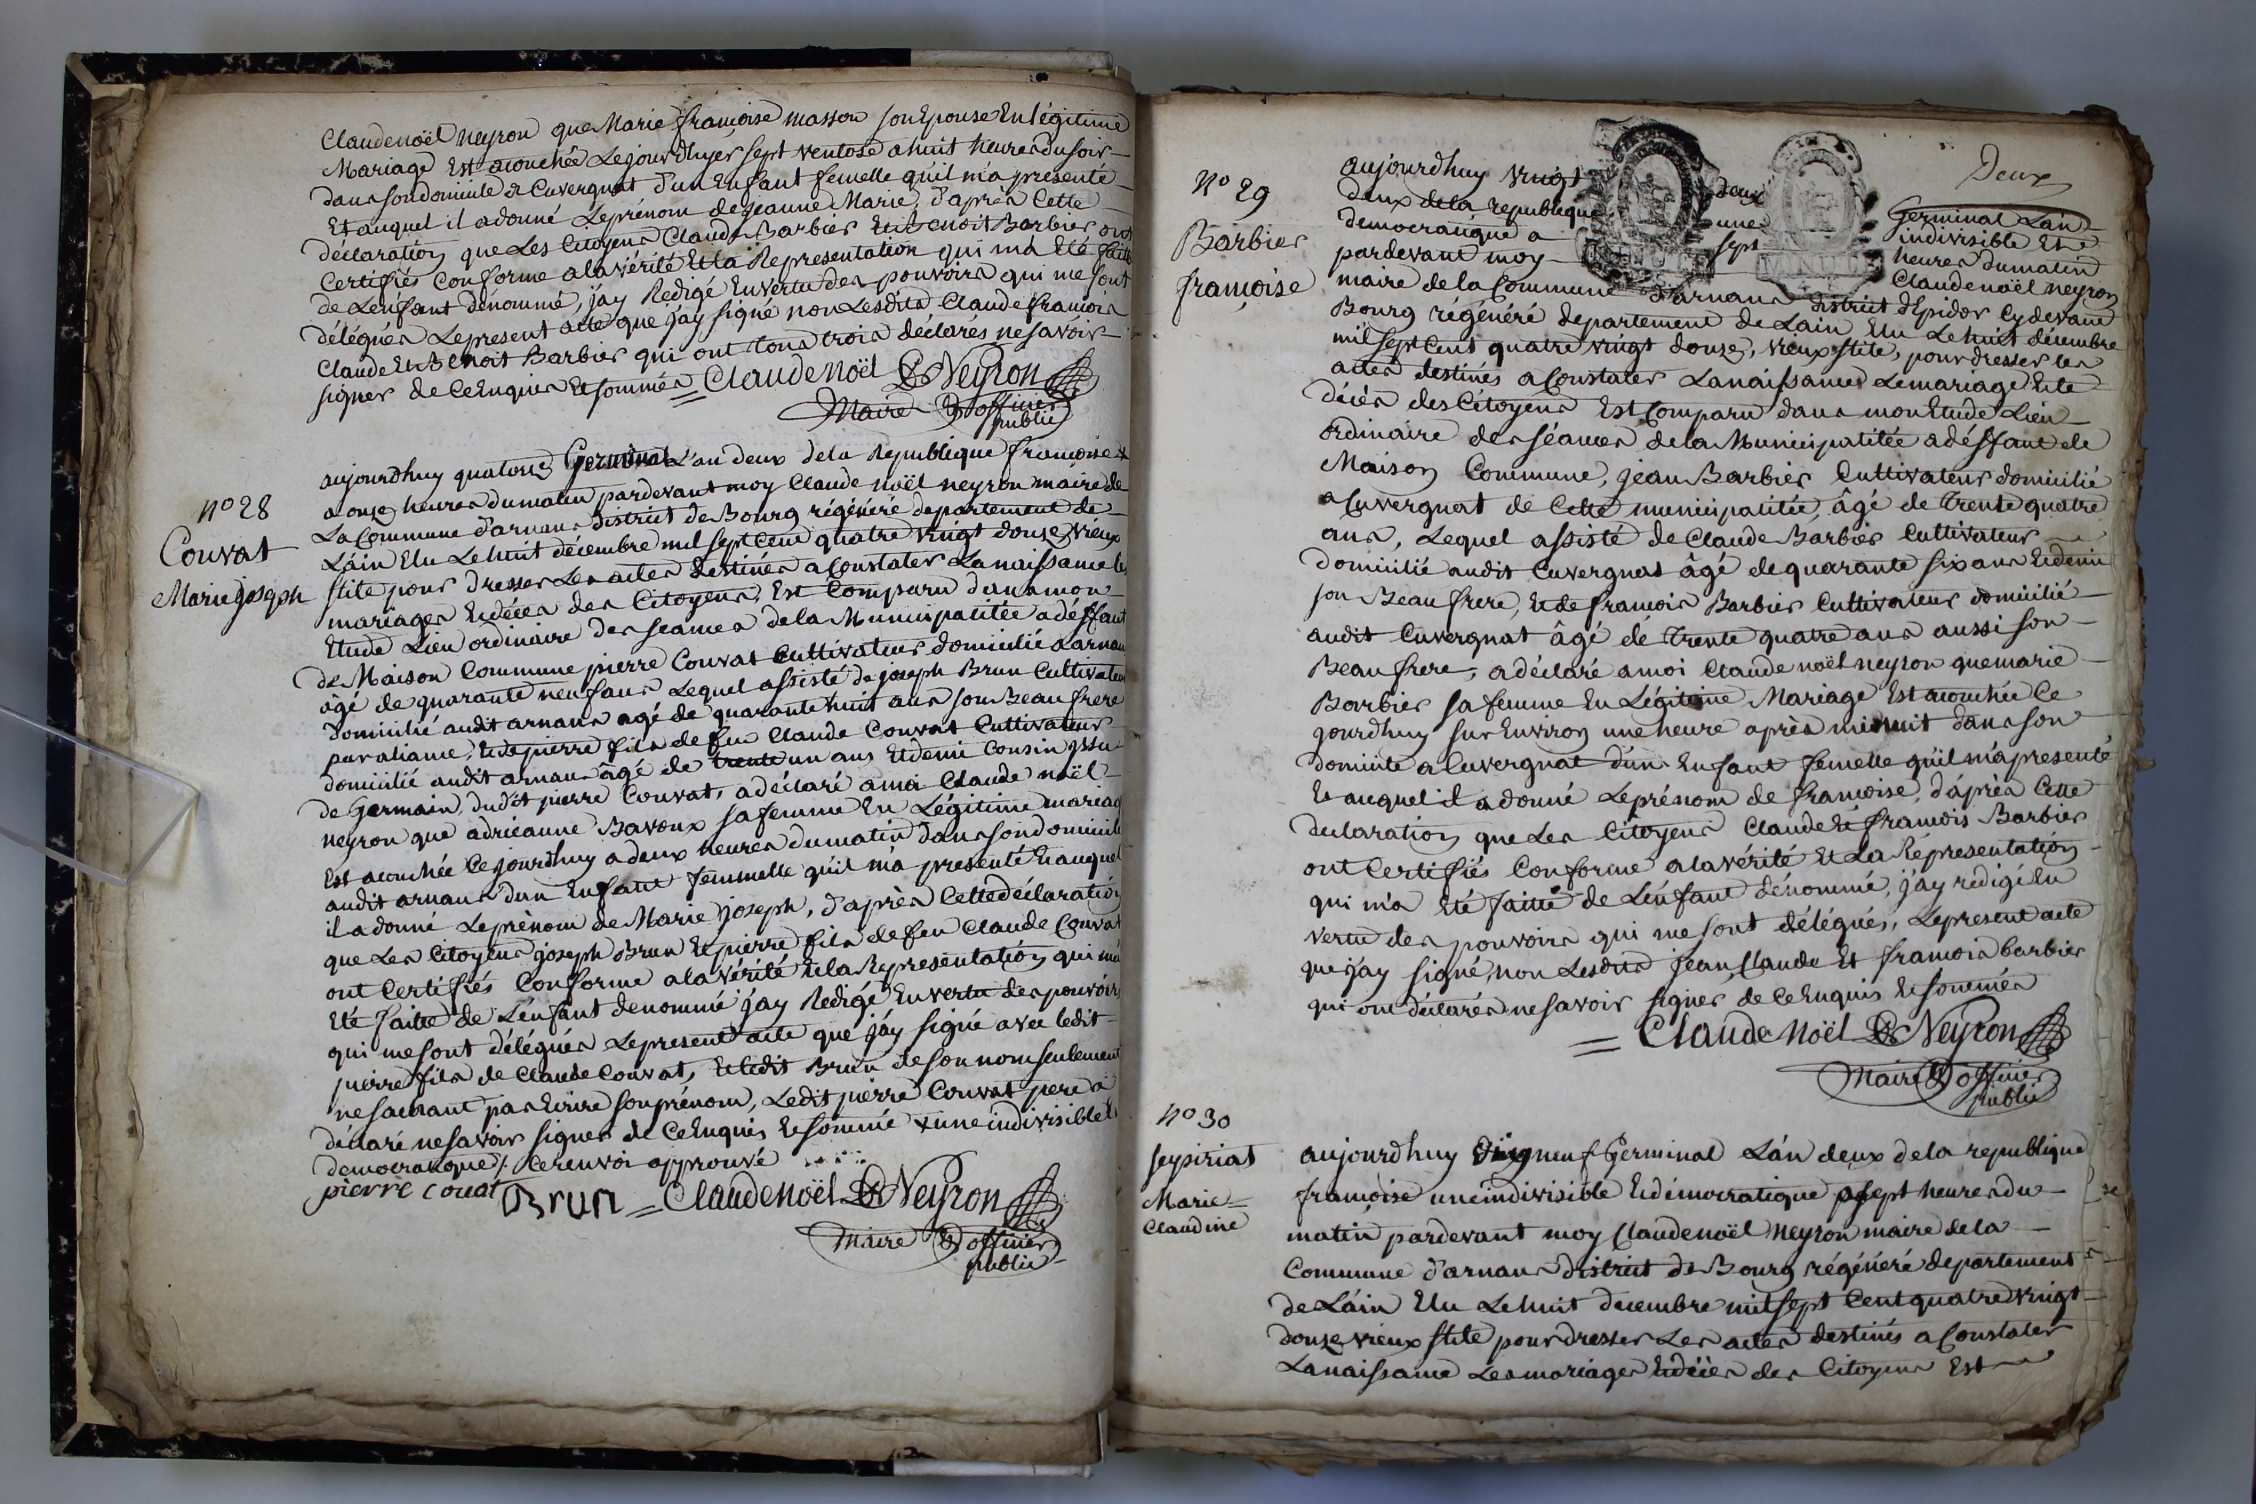 Claudenoël neyron que Marie françoise masson son Epouse En légitime
Mariage Est acouchée Le jourdhyer sept ventose a huit heures du soir
dans son domicile a Cuvergnat d'un Enfant femelle qu'il m'a presenté
Et auquel il a donné Le prénom de jeanne Marie, d'après Cette
déclaration que Les Citoyens Claude Barbier Et Benoit Barbier ont
Certifiés Conforme a la vérité Et la Representation qui m'a Eté faitte
de L'enfant dénommé, j'ay Redigé En vertu des pouvoirs qui me sont
délégués Le present acte que j'ay signé non Lesdits Claude françois
Claude Et Benoit Barbier qui ont tous trois déclarés ne savoir
signer de Ce Enquis Et sommés = Claude Noël Neyron
Maire & officier
public
n° 28
Couvat
Marie joseph
aujourdhuy quatorze Germinal L'an deux de la Republique françoise +
a onze heures du matin pardevant moy Claude noël neyron maire de
La Commune d'arnans district de Bourg régénéré departement de
L'ain Elu Le huit décembre mil sept Cent quatre vingt douze, vieux
stile pour dresser Les actes destinés a Constater La naissance les
mariages Et décès des Citoyens, Est Comparu dans mon
Etude Lieu ordinaire des seances de la Municipalitée a déffaut
de Maison Commune pierre Couvat Cultivateur domicilié a arnans
agé de quarante neuf ans Lequel assisté de joseph Brun Cultivateur
domicilié audit arnans agé de quarante huit ans son Beau frere
par aliance, Et de pierre fils de feu Claude Couvat Cultivateur
domicilié audit arnans âgé de trente un ans Et demi Cousin yssu
de Germain, dudit pierre Couvat, a déclaré a moi Claude noël
neyron que adrieanne Bavoux sa femme En Légitime mariage
Est acouchée Ce jourdhuy a deux heures du matin dans son domicile
audit arnans d'un Enfant femmelle qu'il m'a presenté Et auquel
il a donné Le prènom de Marie joseph, d'après Cette déclaration
que Les Citoyens joseph Brun Et pierre fils de feu Claude Couvat
ont Certifiés Conforme a la vérité Et la Representation qui m'a
Eté faitte de L'enfant denommé j'ay Redigé En vertu des pouvoirs
qui me sont délégués Le present acte que j'ay signé avec ledit
pierre fils de Claude Couvat, Et ledit Brun de son nom seulement
ne sachant pas Ecrire son prénom, Ledit pierre Couvat pere a
déclaré ne savoir signer de Ce Enquis Et sommé + une indivisible Et
democratique /. Ce renvoi approuvé
pierre couat Brun = Claude Noël Neyron
Maire & officier
public
Deux
n° 29
Barbier
françoise
aujourdhuy vingt deux Germinal L'an
deux de la republique une indivisible Et
democratique a sept heures du matin
pardevant moy Claude noël neyron
maire de la Commune d'arnans district d'Epidor Cydevant
Bourg régénéré departement de Lain Elu Le huit décembre
mil sept Cent quatre vingt douze, vieux stile, pour dresser les
actes destinés a Constater La naissance Le mariage Et le
décès des Citoyens Est Comparu dans mon Etude Lieu
ordinaire des séances de la Municipalitée a déffaut de
Maison Commune, jean Barbier Cultivateur domicilié
a Cuvergnat de Cette municipalitée, âgé de trente quatre
ans, Lequel assisté de Claude Barbier Cultivateur
domicilié audit Cuvergnat âgé de quarante six ans Et demi
son Beau frere, Et de françois Barbier Cultivateur domicilié
audit Cuvergnat âgé de trente quatre ans aussi son
Beau frere, a déclaré a moi Claude noël neyron que marie
Barbier sa femme En Légitime Mariage Est acouchée Ce
jourdhuy sur Environ une heure après minuit dans son
domicile a Cuvergnat d'un Enfant femelle qu'il m'a presenté
Et auquel il a donné Le prénom de françoise, d'après Cette
declaration que Les Citoyens Claude Et françois Barbier
ont Certifiés Conforme a la vérité Et La Représentation
qui m'a Eté faitte de L'enfant dénommé, j'ay redigé En
vertu des pouvoirs qui me sont délégués, Le present acte
que j'ay signé, non Lesdits Jean, Claude Et françois barbier
qui ont déclarés ne savoir signer, de Ce Enquis Et sommés
= Claude Noël Neyron
Maire & officier
public
n° 30
seypiriat
Marie
Claudine
aujourdhuy Vingneuf Germinal L'an deux de la republique
françoise une indivisible Et démocratique a sept heures du
matin pardevant moy Claudenoël neyron maire de la
Commune d'arnans district de Bourg régénéré departement
de L'ain Elu Le huit decembre mil sept Cent quatre vingt
douze vieux stile pour dresser Les actes destinés a Constater
La naissance Les mariages Et décès des Citoyens Est